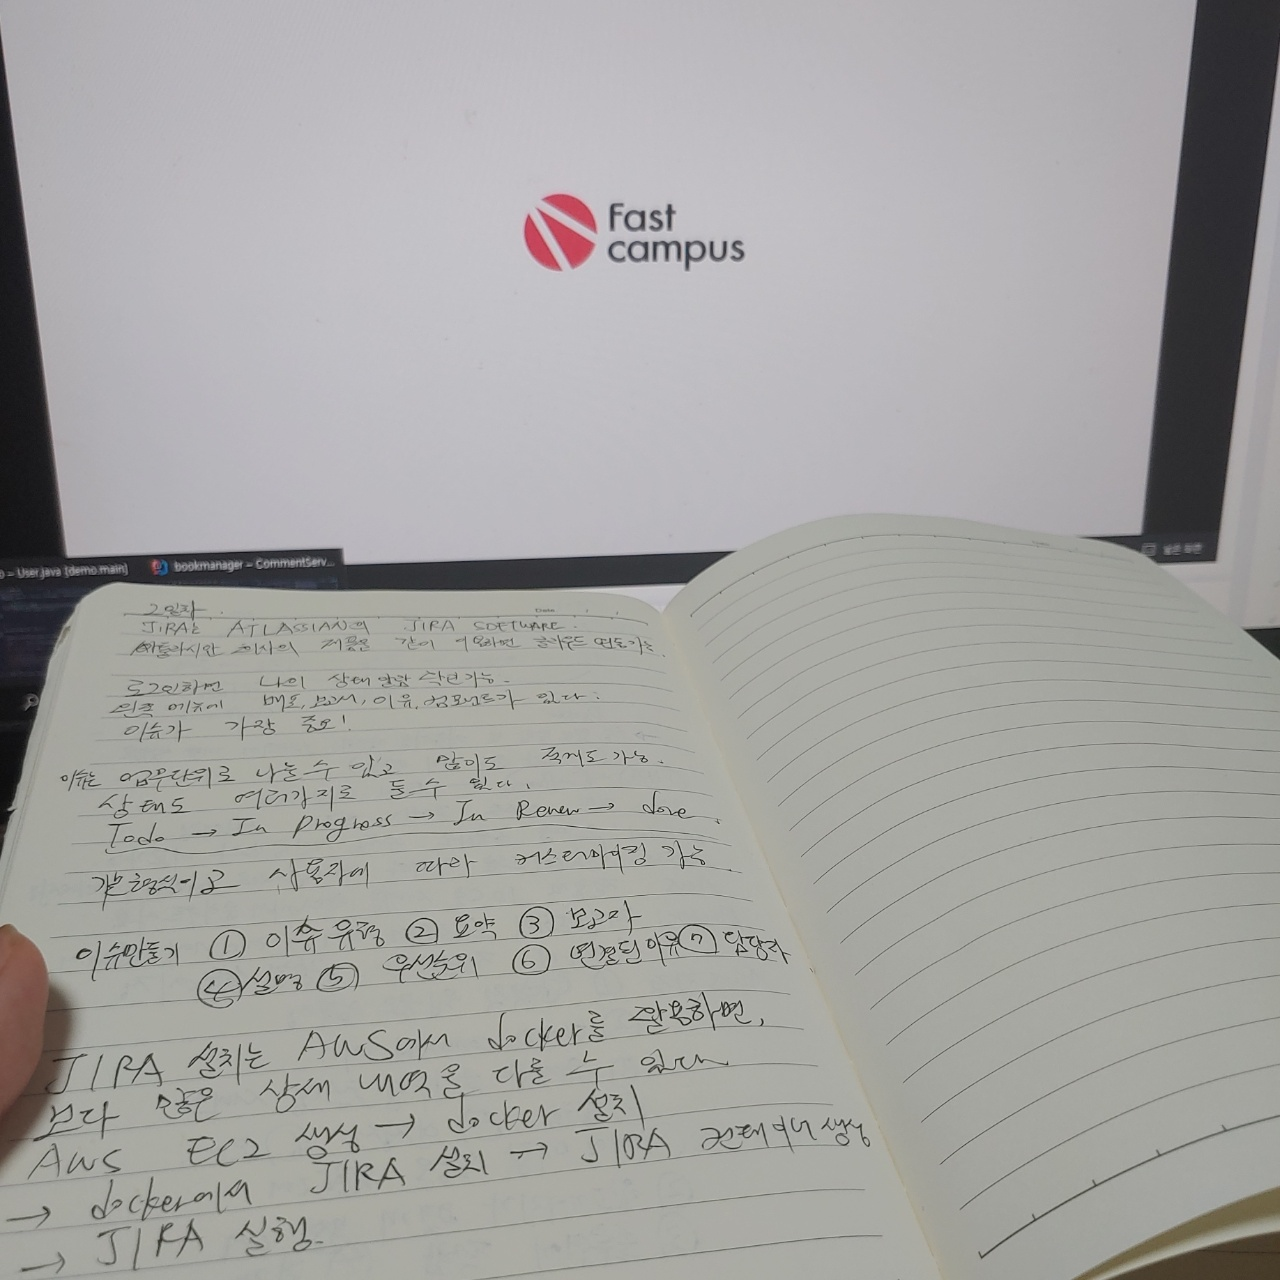 Fast
campus
– User.java [demo.main]
bookmanager – CommentServ...
2일차.
Date
JIRA는 ATLASSIAN의 JIRA SOFTWARE.
아틀라시안 회사의 제품을 같이 이용하면 클라우드 연동가능.
로그인하면 나의 상태 알람 수신가능.
왼쪽 메뉴에 배포, 보고서, 이슈, 컴포넌트가 있다.
이슈가 가장 중요!
이슈는 업무단위로 나눌 수 있고 많이도 적게도 가능.
상태도 여러가지로 둘 수 있다.
Todo → In Progress → In Review → done.
기본형식이고 사용자에 따라 커스터마이징 가능
이슈만들기 ① 이슈유형 ② 요약 ③ 보고자
④ 설명 ⑤ 우선순위 ⑥ 연결된 이슈 ⑦ 담당자
JIRA 설치는 AWS에서 docker를 활용하면,
보다 많은 상세 내역을 다룰 수 있다
AWS EC2 생성 → docker 설치
→ docker에서 JIRA 설치 → JIRA 컨테이너 생성
→ JIRA 실행.